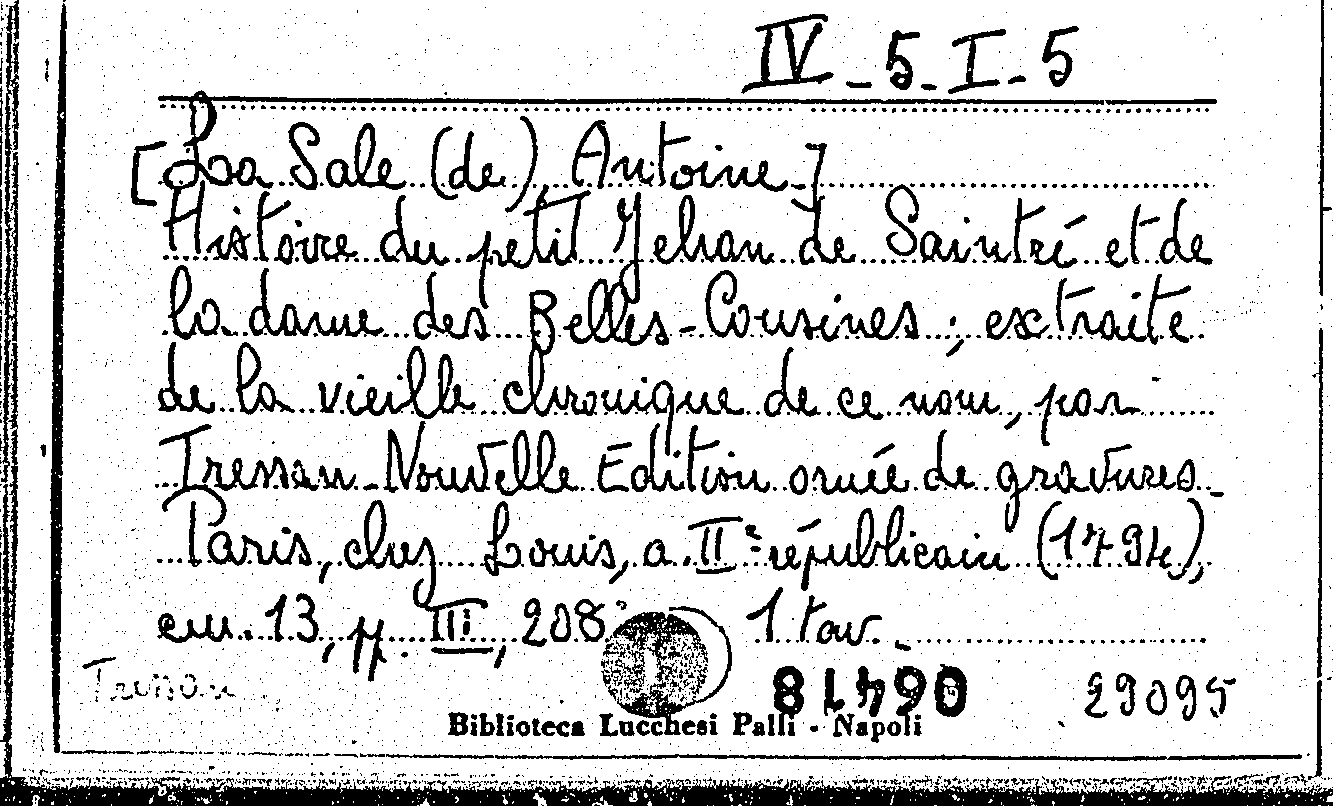 IV - 5 - I - 5
[La Sale (de), Antoine.]
Histoire du petit Jehan de Saintré et de
la dame des Belles-Cousines ; extraite
de la vieille chronique de ce nom, par
Tressan - Nouvelle Edition ornée de gravures -
Paris, chez Louis, a. IIe républicain (1794),
cm. 13, pp. III, 208 1 tav. -
Tressan 06418 29095
Biblioteca Lucchesi Palli - Napoli